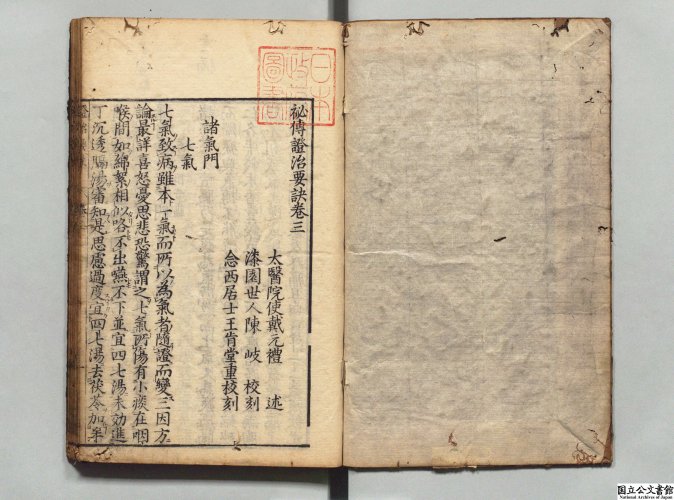 祕傳證治要訣卷三
太醫院使戴元禮 述
漆園世人陳岐 校刻
念西居士王肯堂重校刻
諸氣門
七氣
七氣致病雖本一氣而所以為氣者隨證而變三因方
論最詳喜怒憂思悲恐驚謂之七氣所傷有小痰在咽
喉間如綿絮相似咯不出嚥不下並宜四七湯未効進
丁沉透膈湯審知是思慮過度宜四七湯去茯苓加半
日本
政府
圖書
国立公文書館
National Archives of Japan